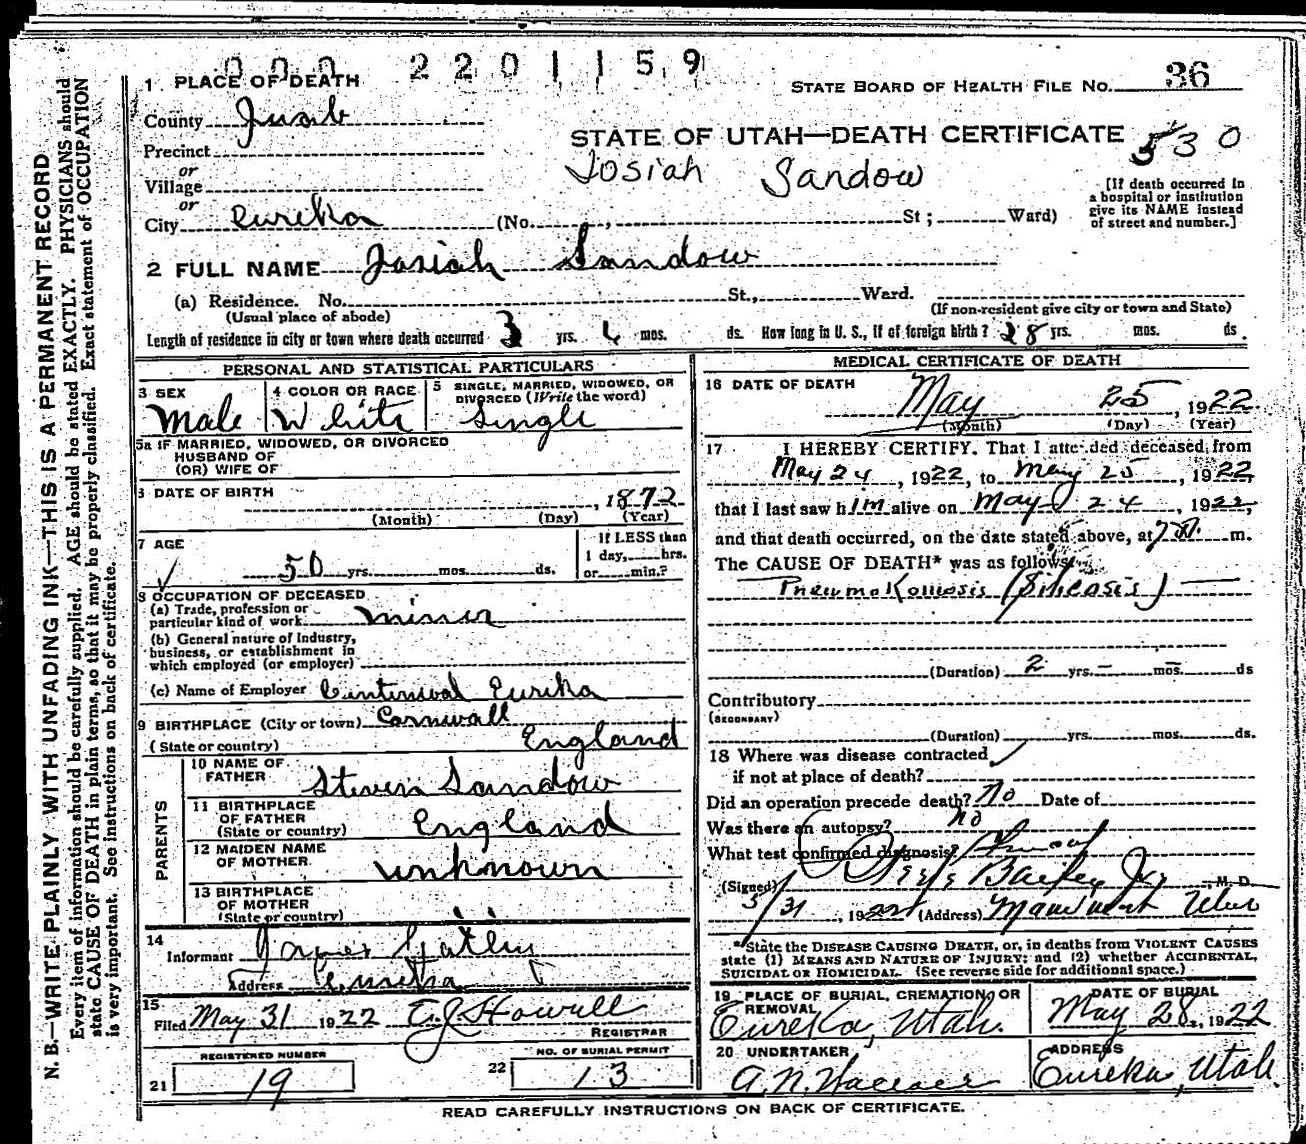 0 0 0 2 2 0 1 1 5 9
1 PLACE OF DEATH
STATE BOARD OF HEALTH FILE No. 36
County Juab
STATE OF UTAH—DEATH CERTIFICATE 530
Precinct
or
Village
Josiah Sandow
[If death occurred in a hospital or institution give its NAME instead of street and number.]
or
City Eureka (No. , St ; Ward)
2 FULL NAME Josiah Sandow
(a) Residence. No. St., Ward.
(Usual place of abode) (If non-resident give city or town and State)
Length of residence in city or town where death occurred 3 yrs. 6 mos. ds. How long in U. S., if of foreign birth ? 28 yrs. mos. ds.
PERSONAL AND STATISTICAL PARTICULARS
3 SEX Male
4 COLOR OR RACE White
5 SINGLE, MARRIED, WIDOWED, OR DIVORCED (Write the word) Single
5a IF MARRIED, WIDOWED, OR DIVORCED
HUSBAND OF
(OR) WIFE OF
DATE OF BIRTH , 1872
(Month) (Day) (Year)
7 AGE 50 yrs. mos. ds.
If LESS than
1 day, hrs.
or min.?
8 OCCUPATION OF DECEASED
(a) Trade, profession or
particular kind of work miner
(b) General nature of Industry,
business, or establishment in
which employed (or employer)
(c) Name of Employer Eureka
9 BIRTHPLACE (City or town) Cornwall
(State or country) England
PARENTS
10 NAME OF
FATHER Steven Sandow
11 BIRTHPLACE
OF FATHER
(State or country) England
12 MAIDEN NAME
OF MOTHER unknown
13 BIRTHPLACE
OF MOTHER
(State or country)
14
Informant James
Address Eureka
15
Filed May 31 1922 E.J. Howell
REGISTRAR
REGISTERED NUMBER
21 19
NO. OF BURIAL PERMIT
22 13
MEDICAL CERTIFICATE OF DEATH
16 DATE OF DEATH
May 25, 1922
(Month) (Day) (Year)
17 I HEREBY CERTIFY. That I attended deceased from
May 24, 1922, to May 25, 1922
that I last saw him alive on May 24, 1922,
and that death occurred, on the date stated above, at m.
The CAUSE OF DEATH* was as follows:
Pneumokoniosis (Silicosis)
(Duration) 2 yrs. – mos. – ds
Contributory
(SECONDARY)
(Duration) yrs. mos. ds.
18 Where was disease contracted
if not at place of death?
Did an operation precede death? No Date of
Was there an autopsy? no
What test confirmed diagnosis?
(Signed) Steele Bailey Jr., M. D.
5/31, 1922 (Address) Mammoth Utah
*State the DISEASE CAUSING DEATH, or, in deaths from VIOLENT CAUSES
state (1) MEANS AND NATURE OF INJURY; and (2) whether ACCIDENTAL,
SUICIDAL OR HOMICIDAL. (See reverse side for additional space.)
19 PLACE OF BURIAL, CREMATION, OR
REMOVAL
Eureka, Utah.
DATE OF BURIAL
May 28, 1922
20 UNDERTAKER
A. N. Wallace
ADDRESS
Eureka, Utah.
READ CAREFULLY INSTRUCTIONS ON BACK OF CERTIFICATE.
N. B.—WRITE PLAINLY WITH UNFADING INK—THIS IS A PERMANENT RECORD
Every item of information should be carefully supplied. AGE should be stated EXACTLY. PHYSICIANS should
state CAUSE OF DEATH in plain terms, so that it may be properly classified. Exact statement of OCCUPATION
is very important. See instructions on back of certificate.